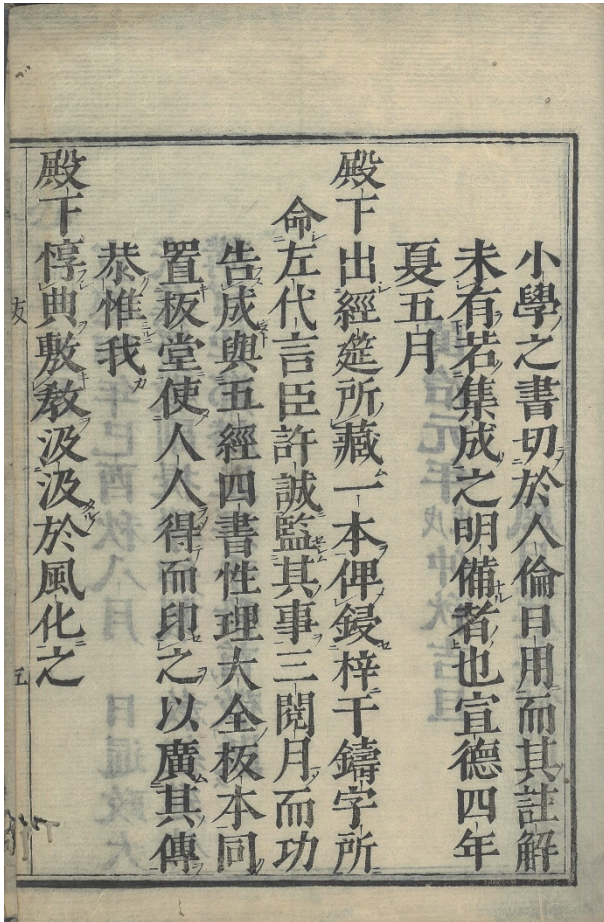 小學之書切於人倫日用而其註解
未有若集成之明備者也宣德四年
夏五月
殿下出經筵所藏一本俾鋟梓于鑄字所
命左代言臣許誠監其事三閱月而功
告成與五經四書性理大全板本同
置板堂使人人得而印之以廣其傳
恭惟我
殿下惇典敷教汲汲於風化之